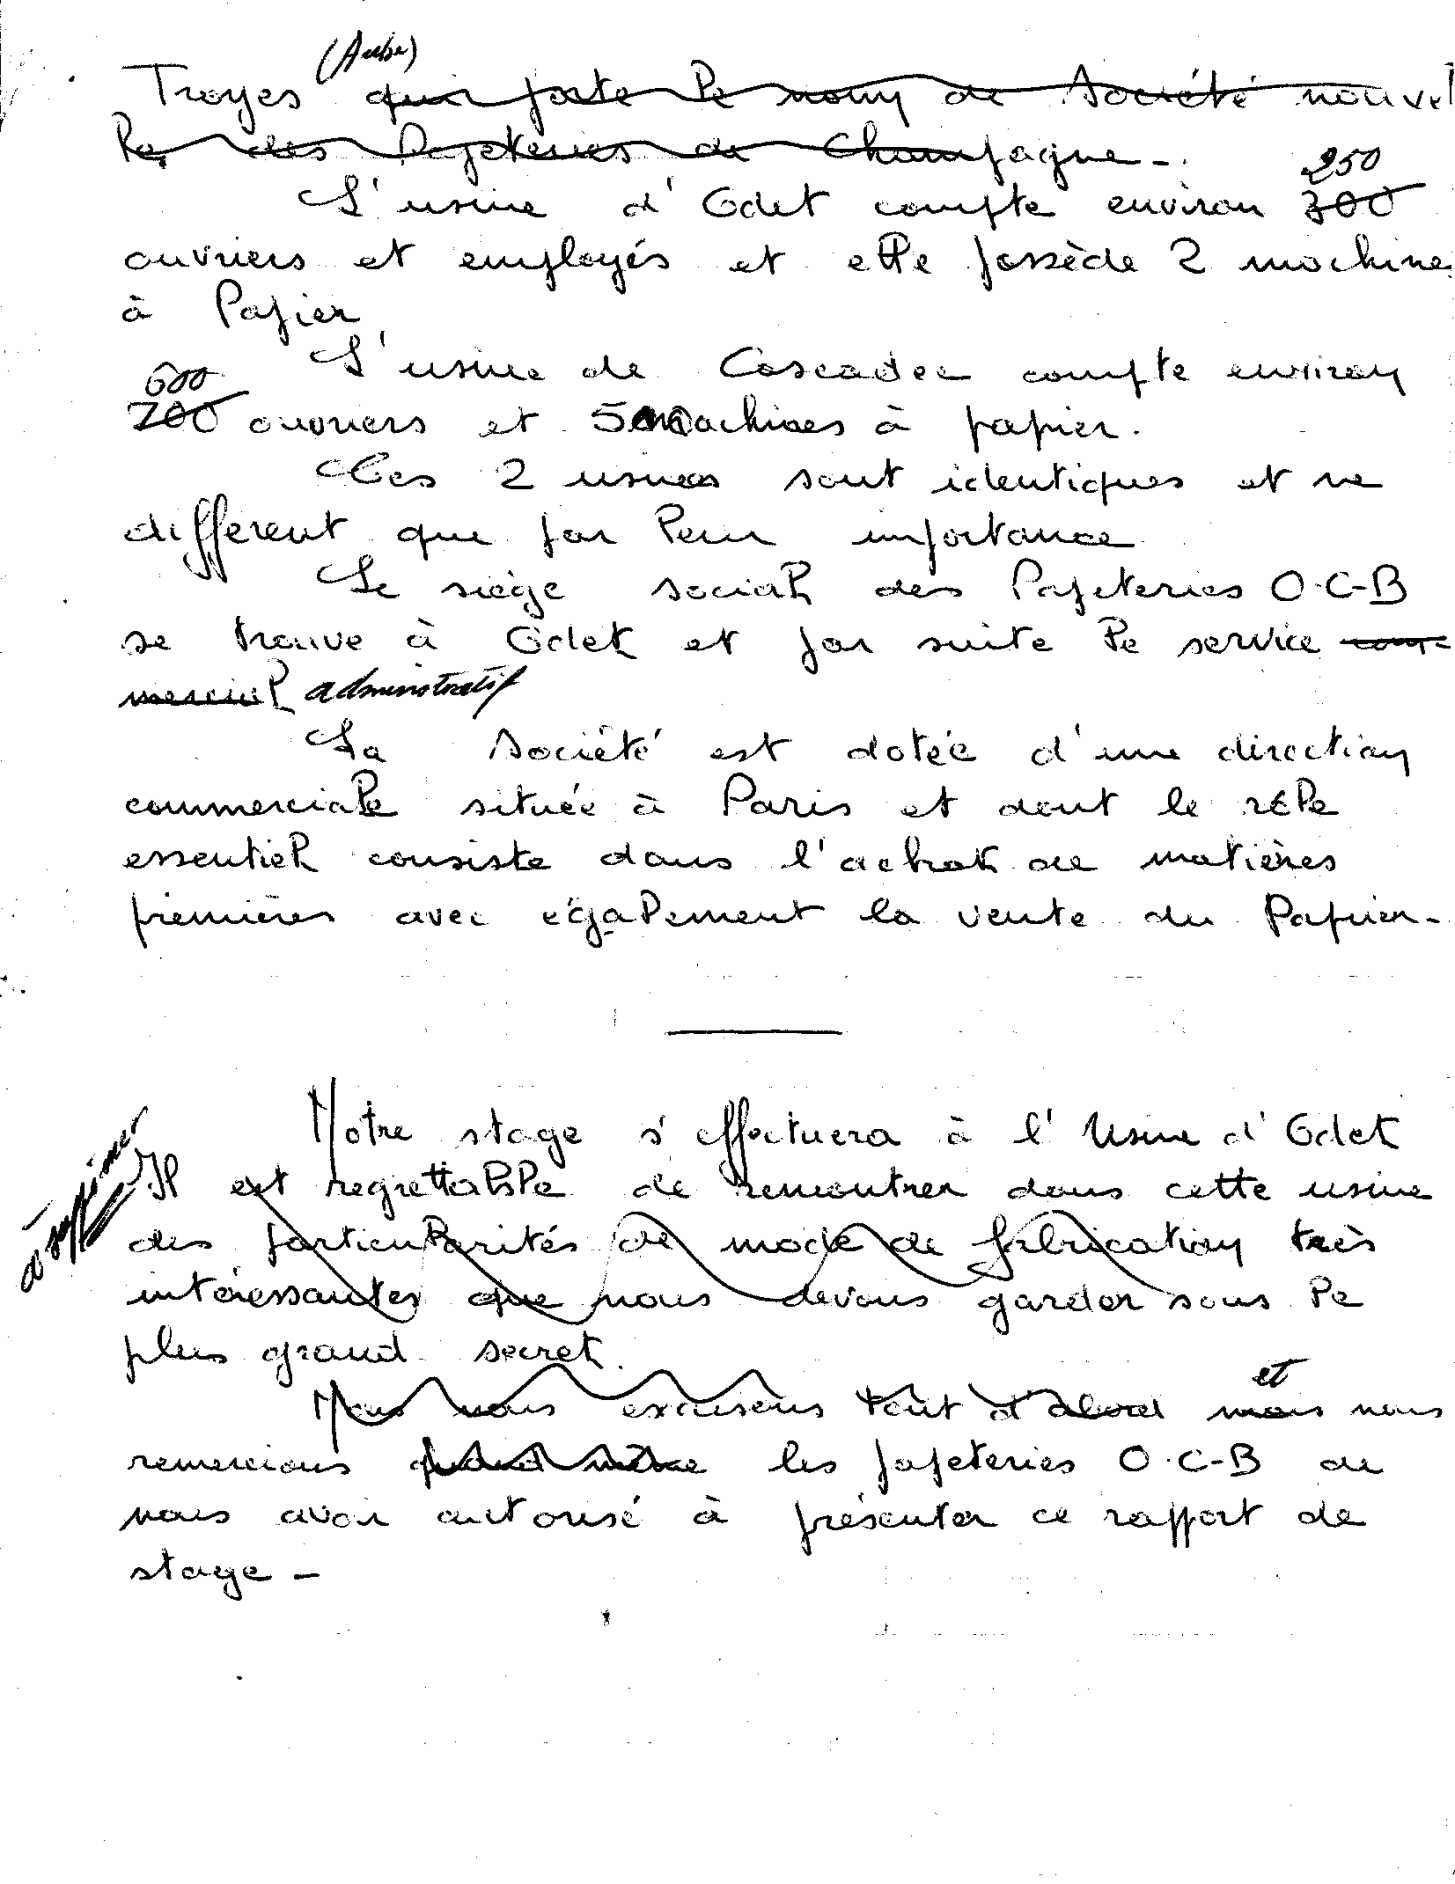 (Aube)
Troyes qui porte le nom de Société nouvel
le des Papeteries de Champagne -
250
L'usine d'Odet compte environ 300
ouvriers et employés et elle possède 2 machine
à Papier
L'usine de Cascadec compte environ
600
700 ouvriers et 5 machines à papier.
Ces 2 usines sont identiques et ne
different que par leur importance
Le siège social des Papeteries O.C-B
se trouve à Odet et par suite le service com-
mercial administratif
La Société est dotée d'une direction
commerciale située à Paris et dont le rôle
essentiel consiste dans l'achat de matières
premières avec également la vente du Papier -
Notre stage s'effectuera à l'Usine d'Odet
à supprimer
Il est regrettable de rencontrer dans cette usine
des particularités de mode de fabrication très
intéressantes que nous devons garder sous le
plus grand secret.
et
Nous nous excusons tout d'abord mais nous
remercions quand même les papeteries O.C-B de
nous avoir autorisé à présenter ce rapport de
stage -